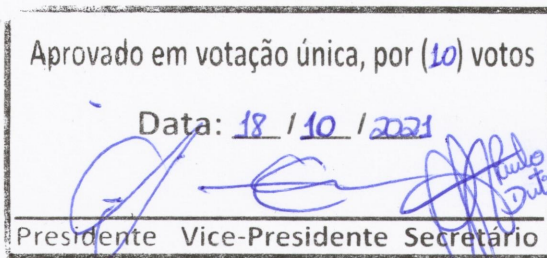 Aprovado em votação única, por (10) votos
Data: 18 / 10 / 2021
Presidente Vice-Presidente Secretário